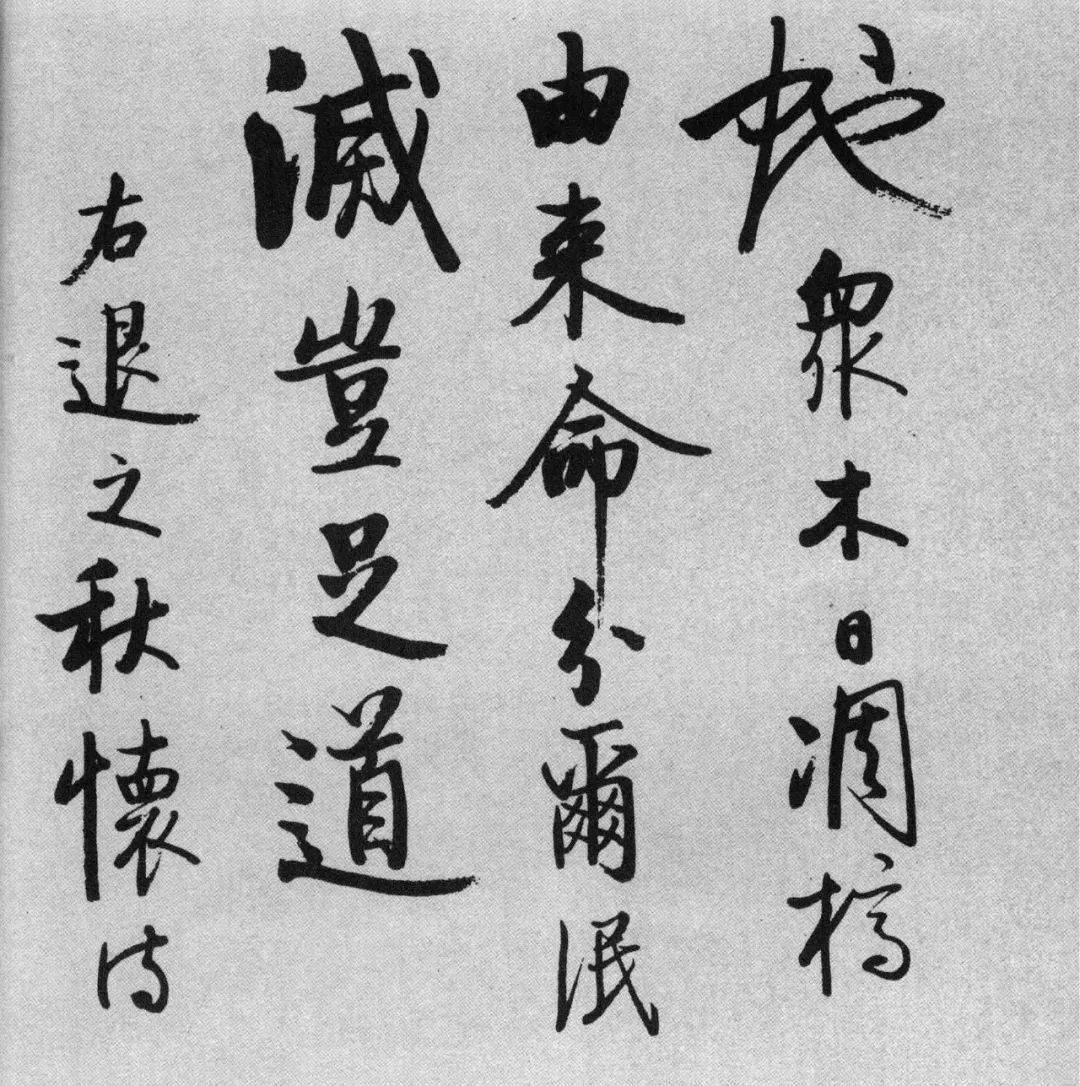 虵衆木日凋槁
由來命分爾泯
滅豈足道
右退之秋懷詩